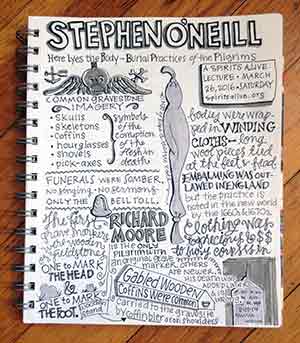 STEPHEN O'NEILL
Here Lyes the Body - Burial Practices of the Pilgrims
A SPIRITS ALIVE
LECTURE • MARCH
26, 2016 • SATURDAY
spiritsalive.org
COMMON GRAVESTONE
IMAGERY
• skulls
• skeletons
• coffins
• hourglasses
• shovels
• pick-axes
symbols
of the
corruption
of the
flesh in
death
bodies were wrap-
ped in WINDING
CLOTHS - long
wool pieces tied
at the feet & head
EMBALMING WAS OUT-
LAWED IN ENGLAND
but the practice
in the new world
by the 1660s & 1670s.
FUNERALS WERE SOMBER.
No singing. No sermons.
ONLY THE BELL TOLL.
The first
grave markers
were wooden
or fieldstones
ONE TO MARK
THE HEAD
&
ONE TO MARK
THE FOOT.
RICHARD
MOORE
is the ONLY
PILGRIM with
an original grave
markers. others
ARE NEWER.
HIS DEATH
Clothing was
Gabled Wooden
Coffins were common
carried to the gravesite
by coffin bier or on shoulders